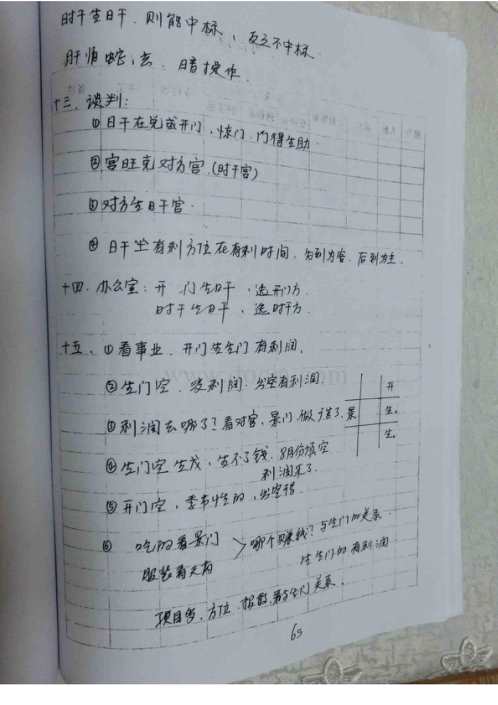 时干生日干，则能中标，反之不中标。
时干临蛇、玄，暗操作。
十三、谈判：
①日干在兑或开门、惊门，门得生助
②宫旺克对方宫（时干宫）
③对方生日干宫
④日干坐有利方位在有利时间，先到为客，后到为主。
十四、办公室：开门生日干，选开门方
时干生日干，选时干方。
十五、①看事业，开门生生门有利润，
②生门空，没利润，出空有利润
③利润去哪了？看对宫，景门，做广告了，景
开
生。
生。
④生门空生戊，生不了钱，8月份填空
利润来了。
⑤开门空，季节性的，出空结
⑥吃的看景门
服装看天芮
哪个赚钱？与生门的关系
生生门的有利润
项目多，方位、格局，看与生门关系。
65